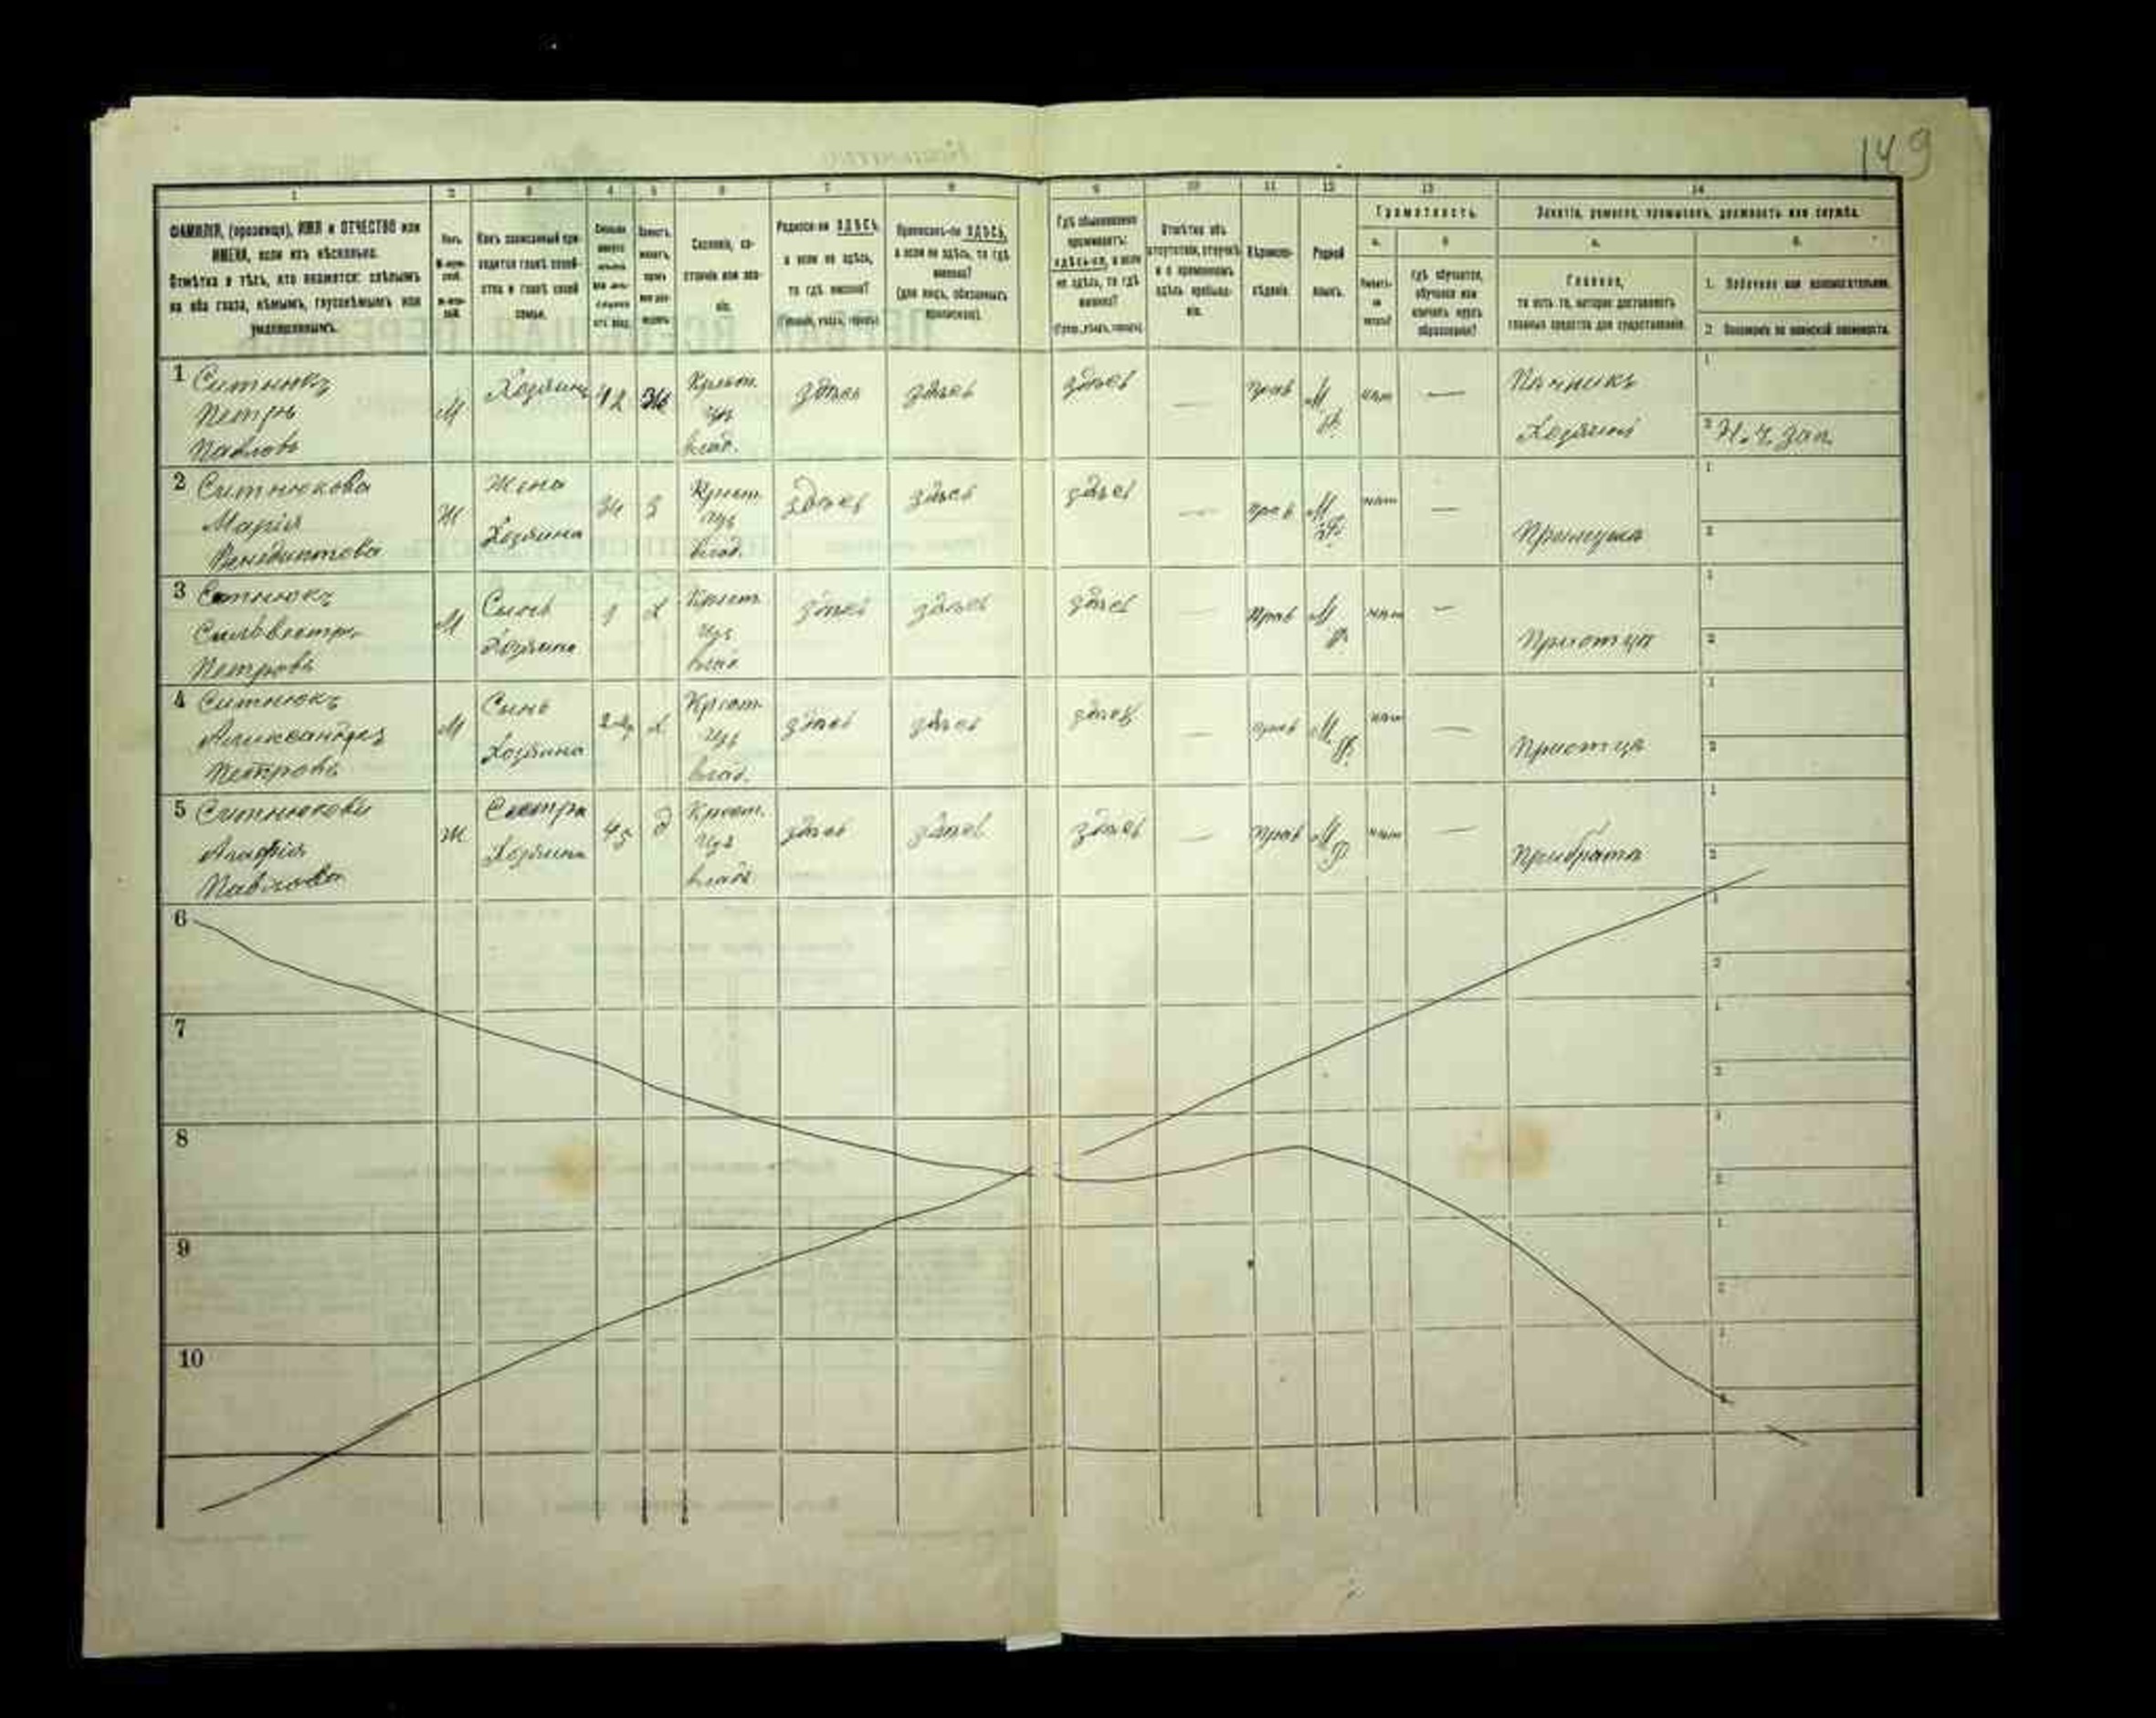 149
1 2 3 4 5 6 7 8 9 10 11 12 13 14
ФАМИЛІЯ, (прозвище), ИМЯ и ОТЧЕСТВО или
ИМЕНА, если ихъ нѣсколько.
Отмѣтка о тѣхъ, кто окажется: слѣпымъ
на оба глаза, нѣмымъ, глухонѣмымъ или
умалишеннымъ.
Какъ записанный при-
ходится главѣ хозяй-
ства и главѣ своей
семьи.
Сословіе, со-
стояніе или зва-
ніе.
Родился-ли ЗДѢСЬ,
а если не здѣсь,
то гдѣ именно?
(Губернія, уѣздъ, городъ)
Приписанъ-ли ЗДѢСЬ,
а если не здѣсь, то гдѣ
именно?
(для лицъ, обязанныхъ
припискою).
Гдѣ обыкновенно
проживаетъ:
здѣсь-ли, а если
не здѣсь, то гдѣ
именно?
(Губер., уѣздъ, городъ)
Отмѣтка объ
отсутствіи, отлучкѣ
и о временномъ
здѣсь пребыва-
ніи.
Вѣроиспо-
вѣданіе.
Родной
языкъ.
Грамотность.
а. б.
Умѣетъ-
ли
читать?
гдѣ обучается,
обучался или
кончилъ курсъ
образованія?
Занятіе, ремесло, промыселъ, должность или служба.
а. б.
Главное,
то есть то, которое доставляетъ
главныя средства для существованія.
1. Побочное или вспомогательное.
2. Положеніе по воинской повинности.
1 Ситнюкъ
Петръ
Павловъ
М Хозяинъ 42 Ж Крест.
изъ
влад.
здѣсь здѣсь здѣсь — Прав М
нѣт — Печникъ
Хозяинъ
1
2 Н. ч. зап.
2 Ситнюкова
Марія
Венедиктова
Ж Жена
Хозяина
З Крест.
изъ
влад.
здѣсь здѣсь здѣсь — Прав М
нѣт — При мужа
1
2
3 Ситнюкъ
Сильвестръ
Петровъ
М Сынъ
Хозяина
Х Крест.
изъ
влад.
здѣсь здѣсь здѣсь — Прав М
нѣт — При отца
1
2
4 Ситнюкъ
Александръ
Петровъ
М Сынъ
Хозяина
Х Крест.
изъ
влад.
здѣсь здѣсь здѣсь — Прав М
нѣт — При отца
1
2
5 Ситнюкова
Агафія
Павлова
Ж Сестра
Хозяина
45 Д Крест.
изъ
влад.
здѣсь здѣсь здѣсь — Прав М
нѣт — При брата
1
2
6
1
2
7
1
2
8
1
2
9
1
2
10
1
2